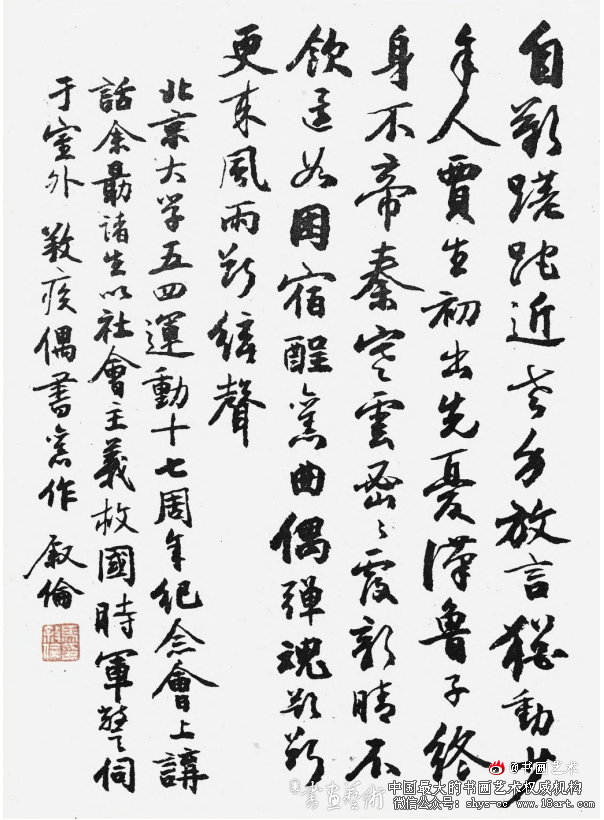 自歎蹉跎近老放言猶動少
年人賈生初出先憂漢魯子終
身不帝秦雲密密霞新晴不
飲還如困宿酲舊曲偶彈魂欲斷
更來風雨斷絃聲
北京大学五四運動十七周年紀念會上講
話余勗諸生以社會主義救國時軍警伺
于室外 疾偶書舊作 叙倫
@书画艺术
書畫藝術
中国最大的书画艺术权威机构
微信公众号：shys-co www.18art.com